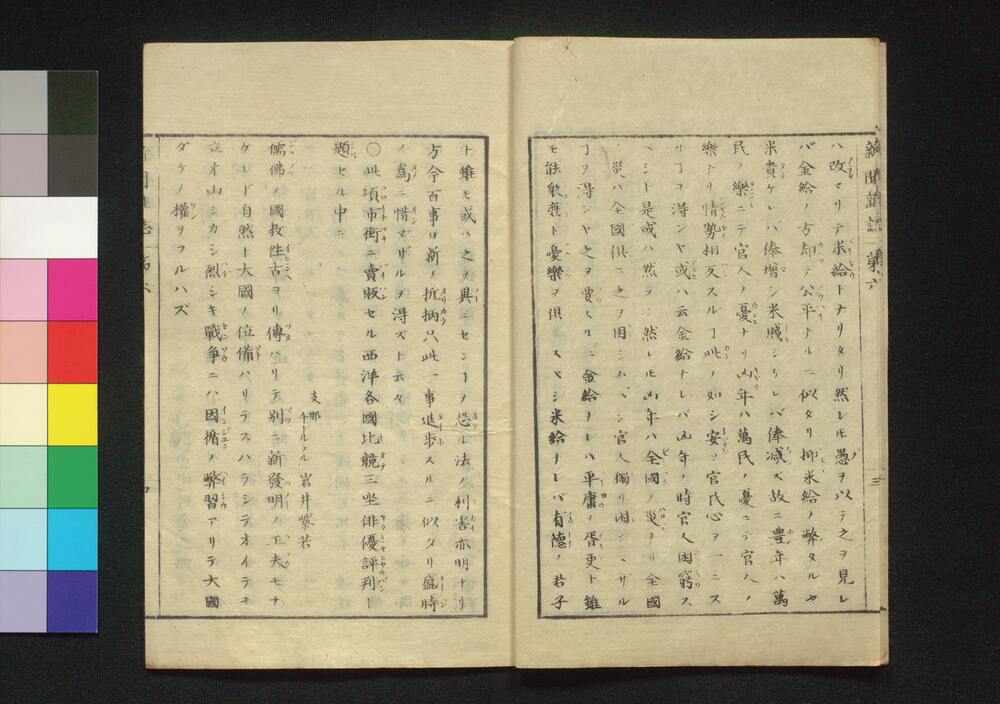 新聞雜誌 第六
ハ改マリテ米給トナリタリ然レ𪜈愚ヲ以テ之ヲ見レ
バ金給ノ方却テ公平ナルニ似タリ抑米給ノ弊タルヤ
米貴ケレバ俸增シ米賤シケレバ俸减ズ故ニ豊年ハ萬
民ノ樂ニテ官人ノ憂ナリ凶年ハ萬民ノ憂ニテ官人ノ
樂ナリ情勢相反スルヿ此ノ如シ安ゾ官民心ヲ一ニス
ルヿヲ得ンヤ或ハ云金給ナレバ凶年ノ時官人困窮ス
ベシト是或ハ然ラン然レ𪜈凶年ハ全國ノ災ナリ全國
ノ災ハ全國俱ニ之ヲ困シムベシ官人獨リ困シマザル
ヿヲ得ンヤ之ヲ要スルニ金給ナレバ平庸ノ胥吏ト雖
モ能衆庶ト憂樂ヲ俱ニスベシ米給ナレバ有德ノ君子
ト雖モ或ハ之ヲ異ニセンヿヲ恐ル法ノ利害亦明ナリ
方今百事日新ノ折柄只此一事退歩スルニ似タリ盛時
ノ爲ニ惜マザルヲ得ズト云々
〇此頃市街ニ賣販セル西洋各國比競三坐俳優評判ト
題セル中ニ
支那 岩井紫若
儒佛ノ國教往古ヨリ傳ハリテ別ニ新發明ノ工夫モナ
ケレド自然ト大國ノ位備ハリテスハラシテオイテモ
立オ山シカシ烈シキ戰争ニハ因循ノ弊習アリテ大國
ダケノ權ヲフルハズ
三